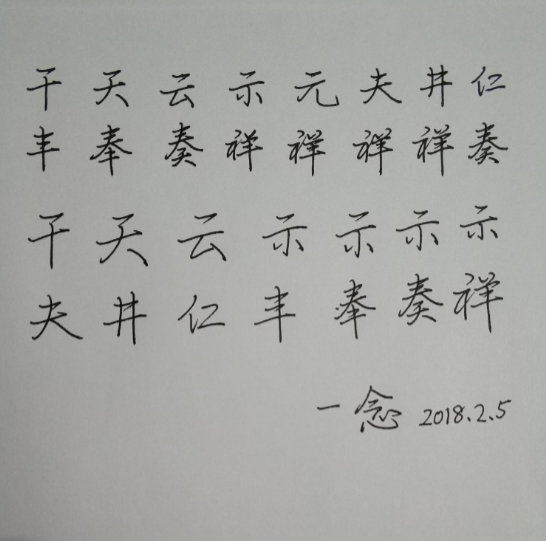 干天云示元夫井仁
丰奉奏祥祥祥祥奏
干天云示示示示
夫井仁丰奉奏祥
一念 2018.2.5